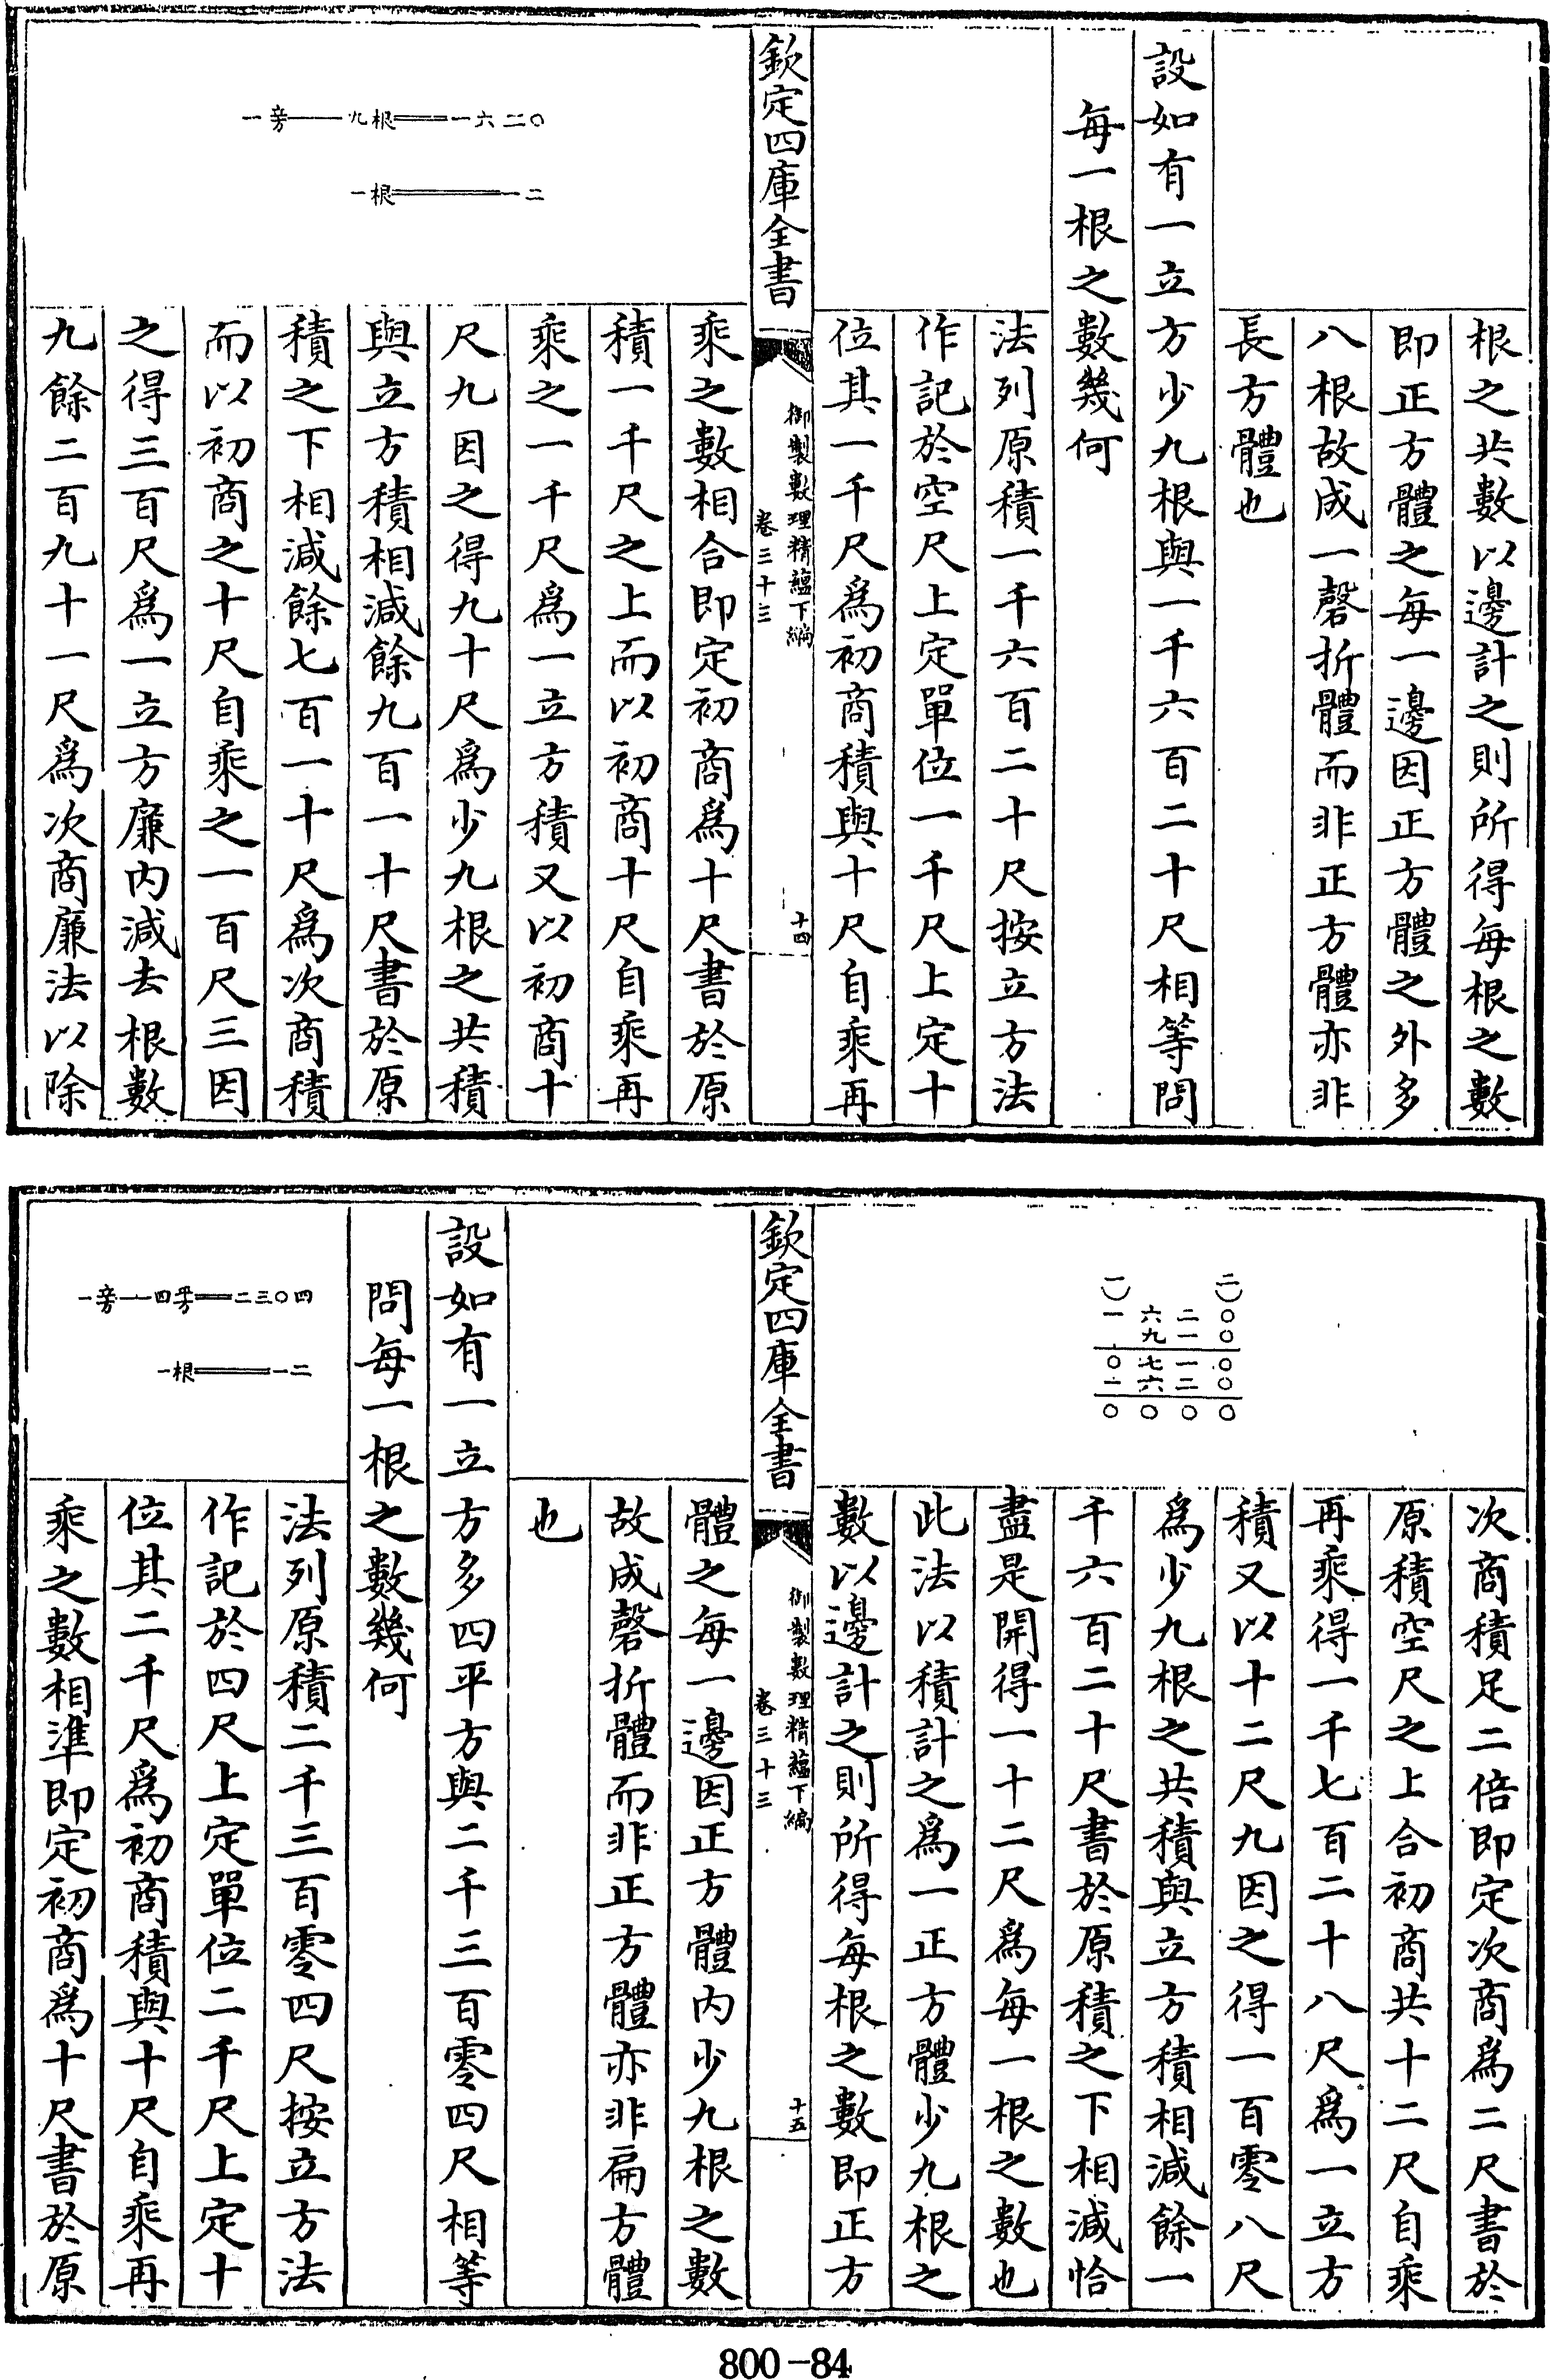 根之共數以邊計之則所得每根之數
即正方體之每一邊因正方體之外多
八根故成一磬折體而非正方體亦非
長方體也
設如有一立方少九根與一千六百二十尺相等問
每一根之數幾何
法列原積一千六百二十尺按立方法
作記於空尺上定單位一千尺上定十
位其一千尺爲初商積與十尺自乘再
欽定四庫全書
御製數理精蘊下編
卷三十三
十四
乘之數相合即定初商爲十尺書於原
積一千尺之上而以初商十尺自乘再
乘之一千尺爲一立方積又以初商十
尺九因之得九十尺爲少九根之共積
與立方積相減餘九百一十尺書於原
積之下相減餘七百一十尺爲次商積
而以初商之十尺自乘之一百尺三因
之得三百尺爲一立方廉內減去根數
九餘二百九十一尺爲次商廉法以除
一㝑——九根══一六二〇
一根════一二
二)〇〇〇〇〇
二一一二〇
六九七六〇
一)一〇一〇
次商積足二倍即定次商爲二尺書於
原積空尺之上合初商共十二尺自乘
再乘得一千七百二十八尺爲一立方
積又以十二尺九因之得一百零八尺
爲少九根之共積與立方積相減餘一
千六百二十尺書於原積之下相減恰
盡是開得一十二尺爲每一根之數也
此法以積計之爲一正方體少九根之
數以邊計之則所得每根之數即正方
欽定四庫全書
御製數理精蘊下編
卷三十三
十五
體之每一邊因正方體內少九根之數
故成磬折體而非正方體亦非扁方體
也
設如有一立方多四平方與二千三百零四尺相等
問每一根之數幾何
法列原積二千三百零四尺按立方法
作記於四尺上定單位二千尺上定十
位其二千尺爲初商積與十尺自乘再
乘之數相準即定初商爲十尺書於原
一㝑—四䒶══二三〇四
一根═══一二
800-84